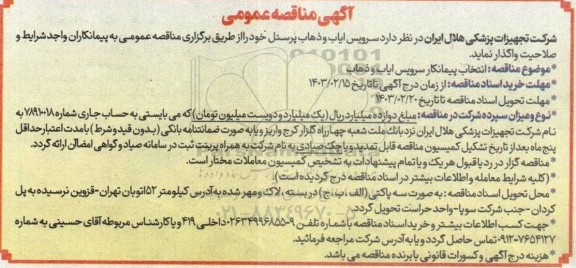 آگهی مناقصه عمومی
شرکت تجهیزات پزشکی هلال ایران در نظر دارد سرویس ایاب و ذهاب پرسنل خود را از طریق برگزاری مناقصه عمومی به پیمانکاران واجد شرایط و
صلاحیت واگذار نماید.
*موضوع مناقصه: انتخاب پیمانکار سرویس ایاب و ذهاب
*مهلت خرید اسناد مناقصه: از زمان درج آگهی تا تاریخ ۱۴۰۳/۰۲/۱۵
*مهلت تحویل اسناد مناقصه تا تاریخ ۱۴۰۳/۰۲/۲۰
*نوع و میزان سپرده شرکت در مناقصه: مبلغ دوازده میلیارد ریال (یک میلیارد و دویست میلیون تومان) که می بایستی به حساب جاری شماره ۷۸۹۱۰۰۱۸ به
نام شرکت تجهیزات پزشکی هلال ایران نزد بانک ملت شعبه چهارراه گلزار کرج واریز و یا به صورت ضمانتنامه بانکی (بدون قید و شرط) با مدت اعتبار حداقل
پنج ماه بعد از تاریخ تشکیل کمیسیون مناقصه قابل تمدید و یا چک صیادی به نام شرکت به همراه پرینت ثبت در سامانه صیاد و گواهی امضا ارائه گردد.
*مناقصه گزار در رد یا قبول هر یک و یا تمام پیشنهادات به تشخیص کمیسیون معاملات مختار است.
*(کلیه شرایط معامله و اطلاعات بیشتر در اسناد مناقصه درج گردیده است);
*محل تحویل اسناد مناقصه: به صورت سه پاکتی (الف، ب، ج) در بسته، لاک و مهر شده به آدرس کیلومتر ۵۲ اتوبان تهران-قزوین نرسیده به پل
کردان -جنب شرکت سوپا- واحد حراست تحویل گردد.
*جهت کسب اطلاعات بیشتر و خرید اسناد مناقصه با شماره تلفن ۹-۰۲۶۳۴۹۹۶۸۵۵ داخلی ۴۱۹ و یا کارشناس مربوطه آقای حسینی به شماره
۰۹۱۲۰۷۶۵۴۱۲۷ تماس حاصل گردد و یا به آدرس شرکت مراجعه فرمائید.
*هزینه درج آگهی و کسورات قانونی با برنده مناقصه می باشد.